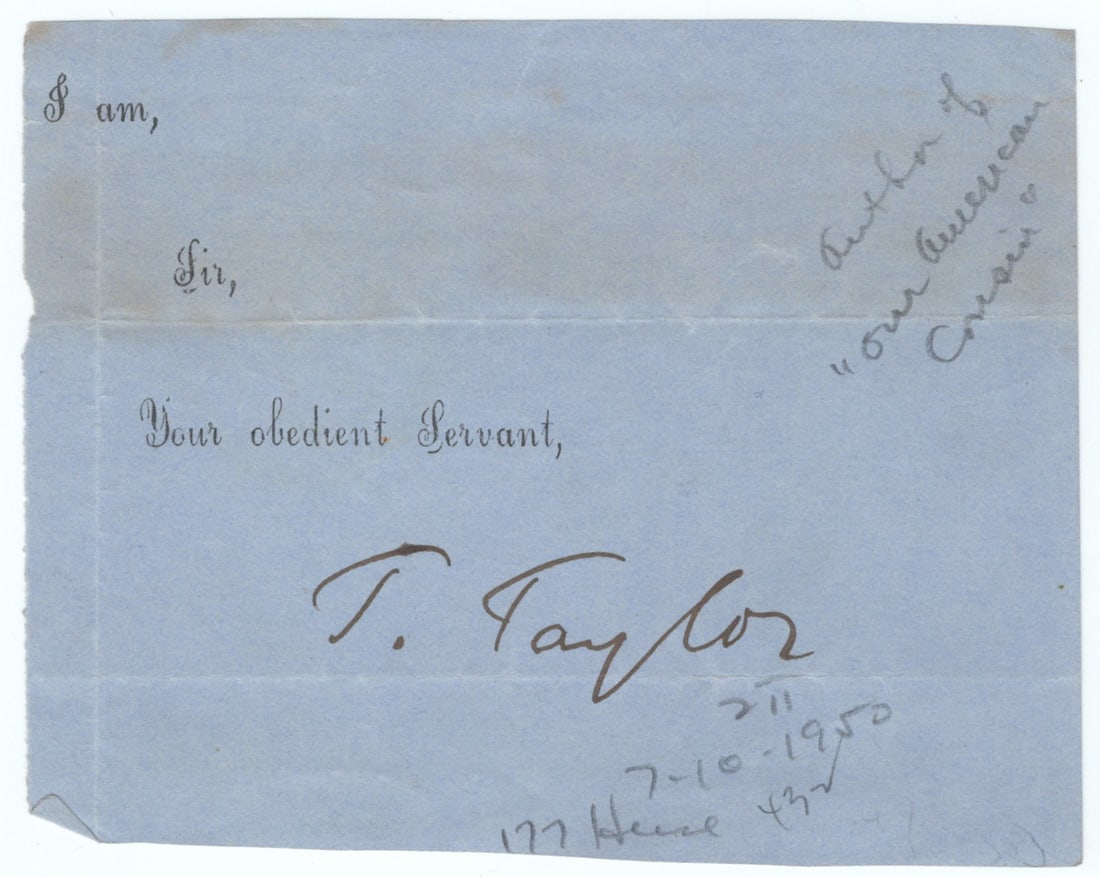 I am,
Sir,
Your obedient Servant,
T. Taylor
Author of
"Our American
Cousin"
7-10-1950
177